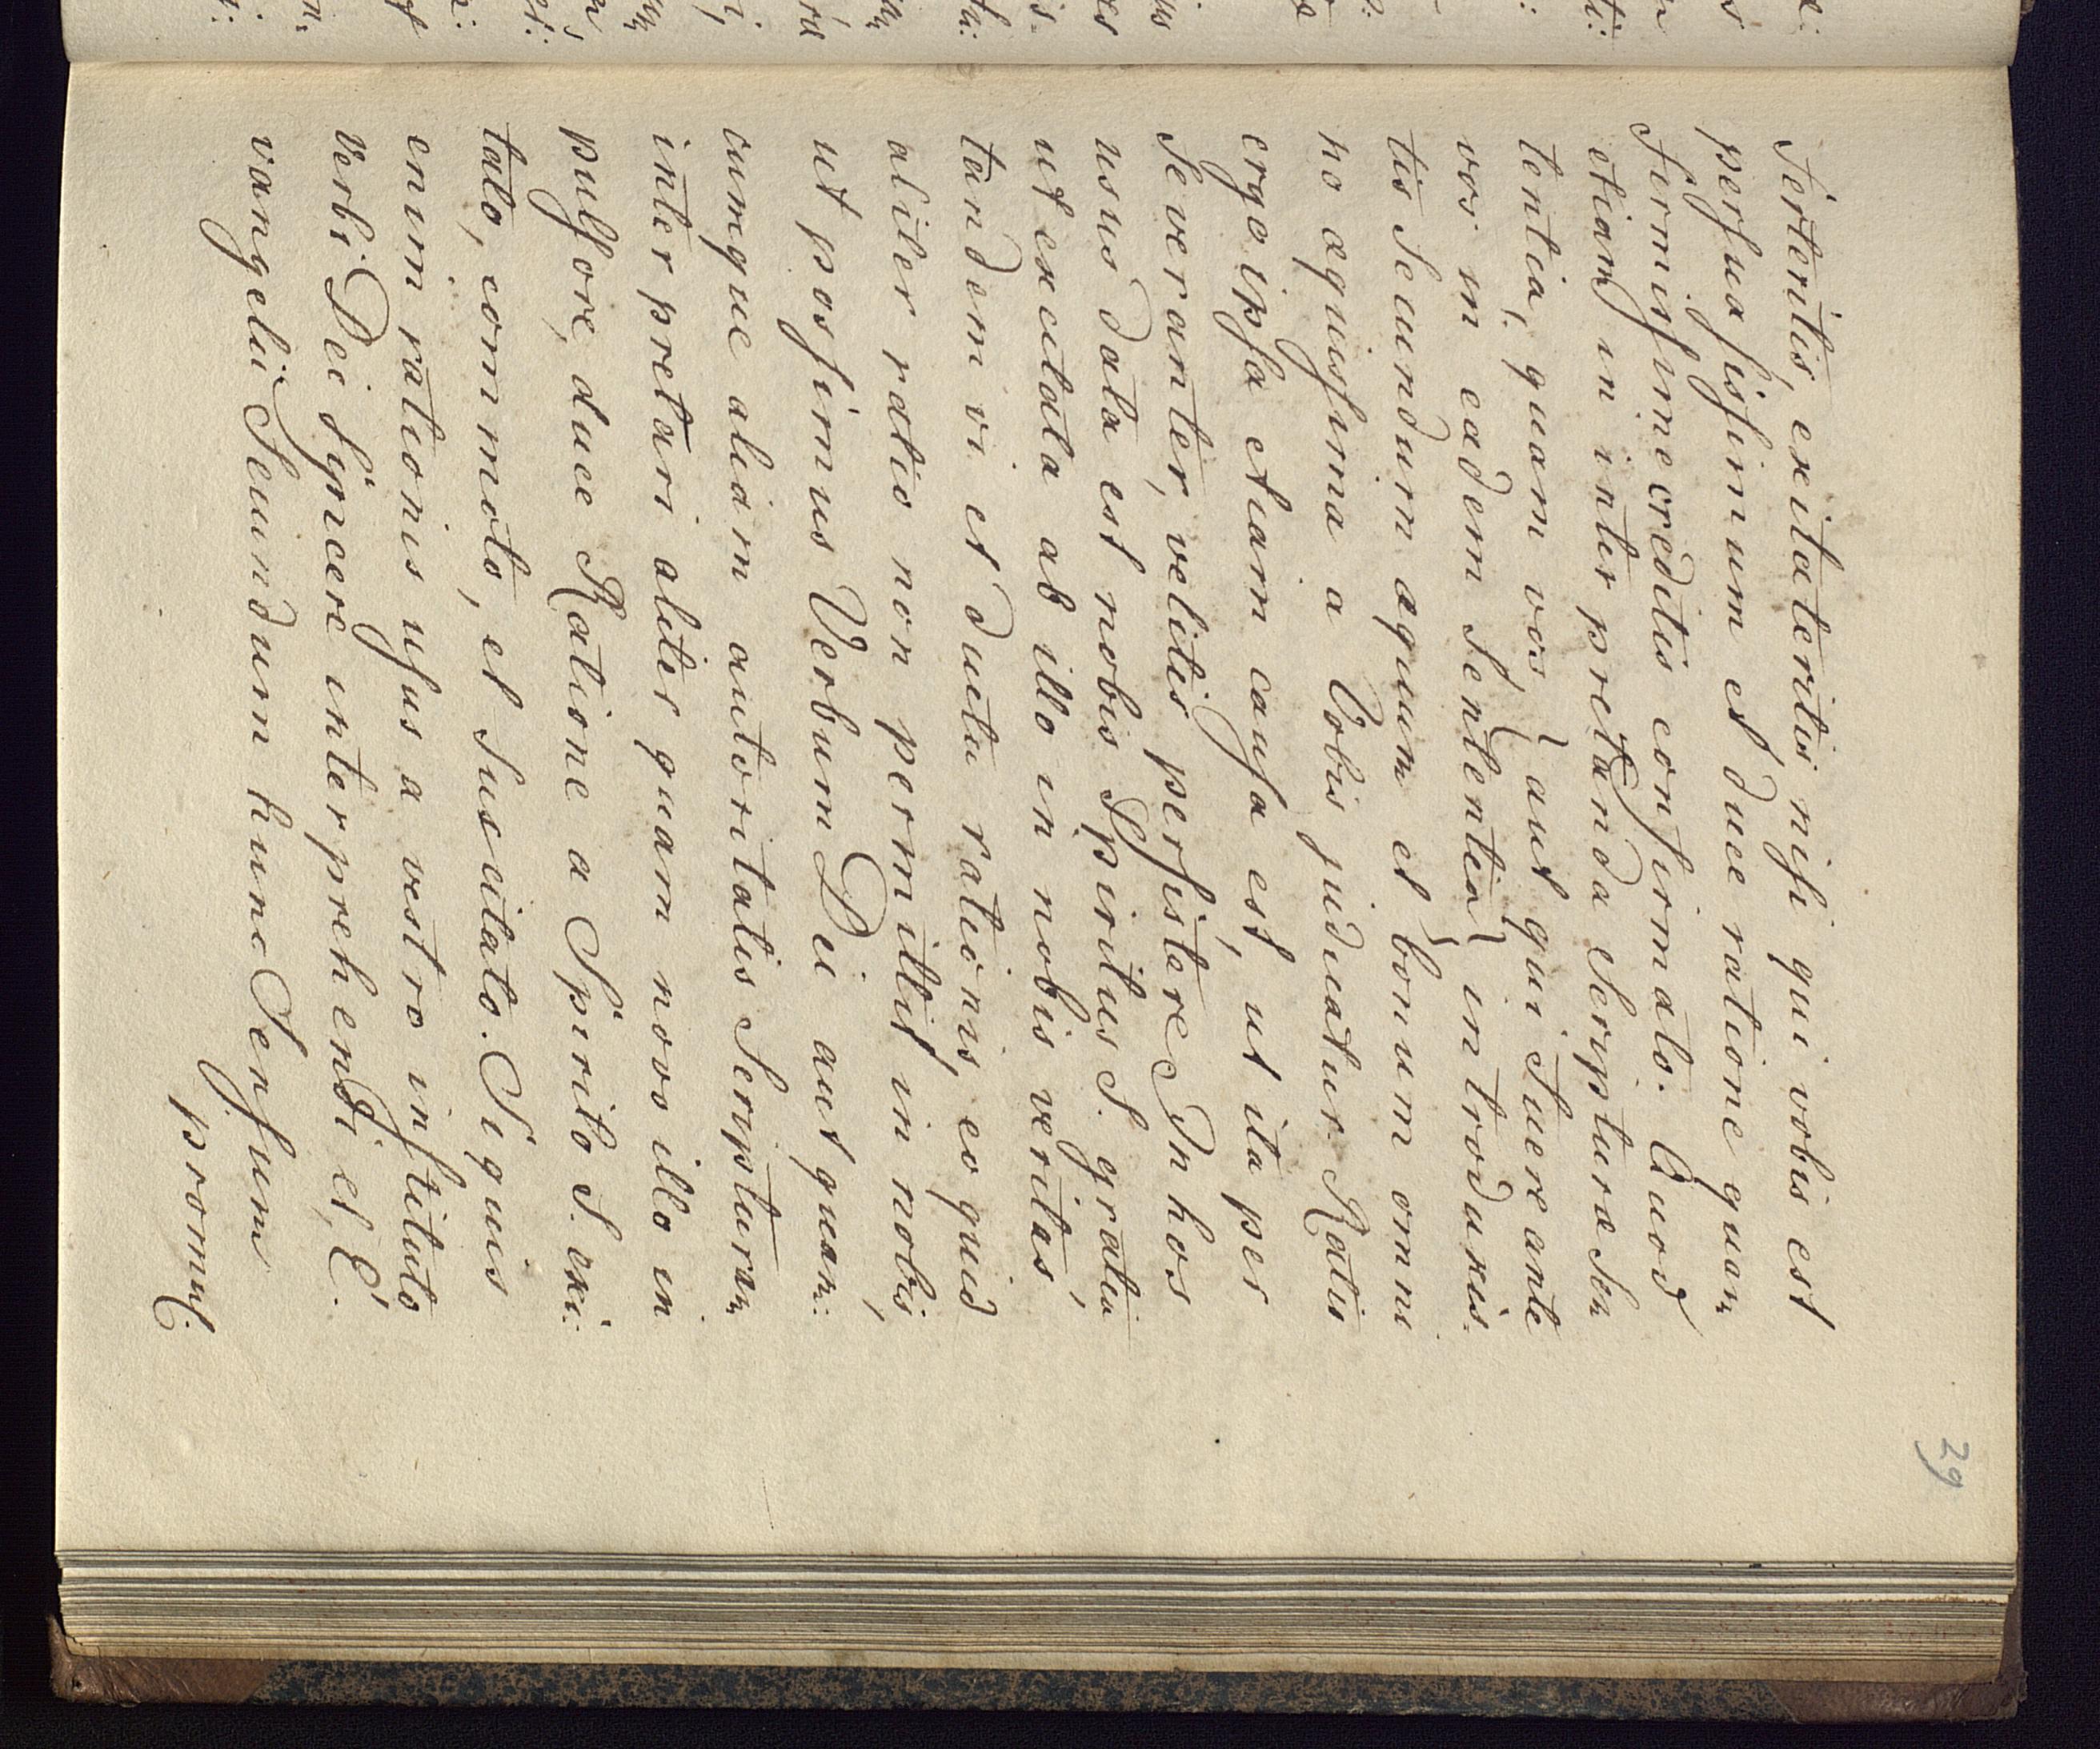 29
serteritis, exitateritis nisi qui vobis est
persuasissimum et duce ratione quam
firmissime creditis confirmato. Quod
etiam in interpretanda scripturæ sen
tentia, quam vos } aut qui fuere ante
vos in eadem sententia } introduxis-
tis secundum æquum et bonum omni
no æquissima a Vobis judicatur. Ratio
ergo ipsa etiam causa est, ut ita per
severanter, velitis persistere. In hos
usus data est nobis Spiritus S. gratia
ut excitata ab illo in nobis veritas,
tandem vi et ductu rationis, eo quid
aliter ratio non permittit in nobis,
ut possimus Verbum Dei aut quam:
cumque aliam autoritatis Scripturam
interpretari aliter quam novo illo in
pulsore, duce Ratione a Spirito S. exi:
tato, commoto, et suscitato. Siquis
enim rationis usus a vestro instituto
verbi Dei syncere interprehendi et E:
vangelii Secundum hunc Sensum
promul: